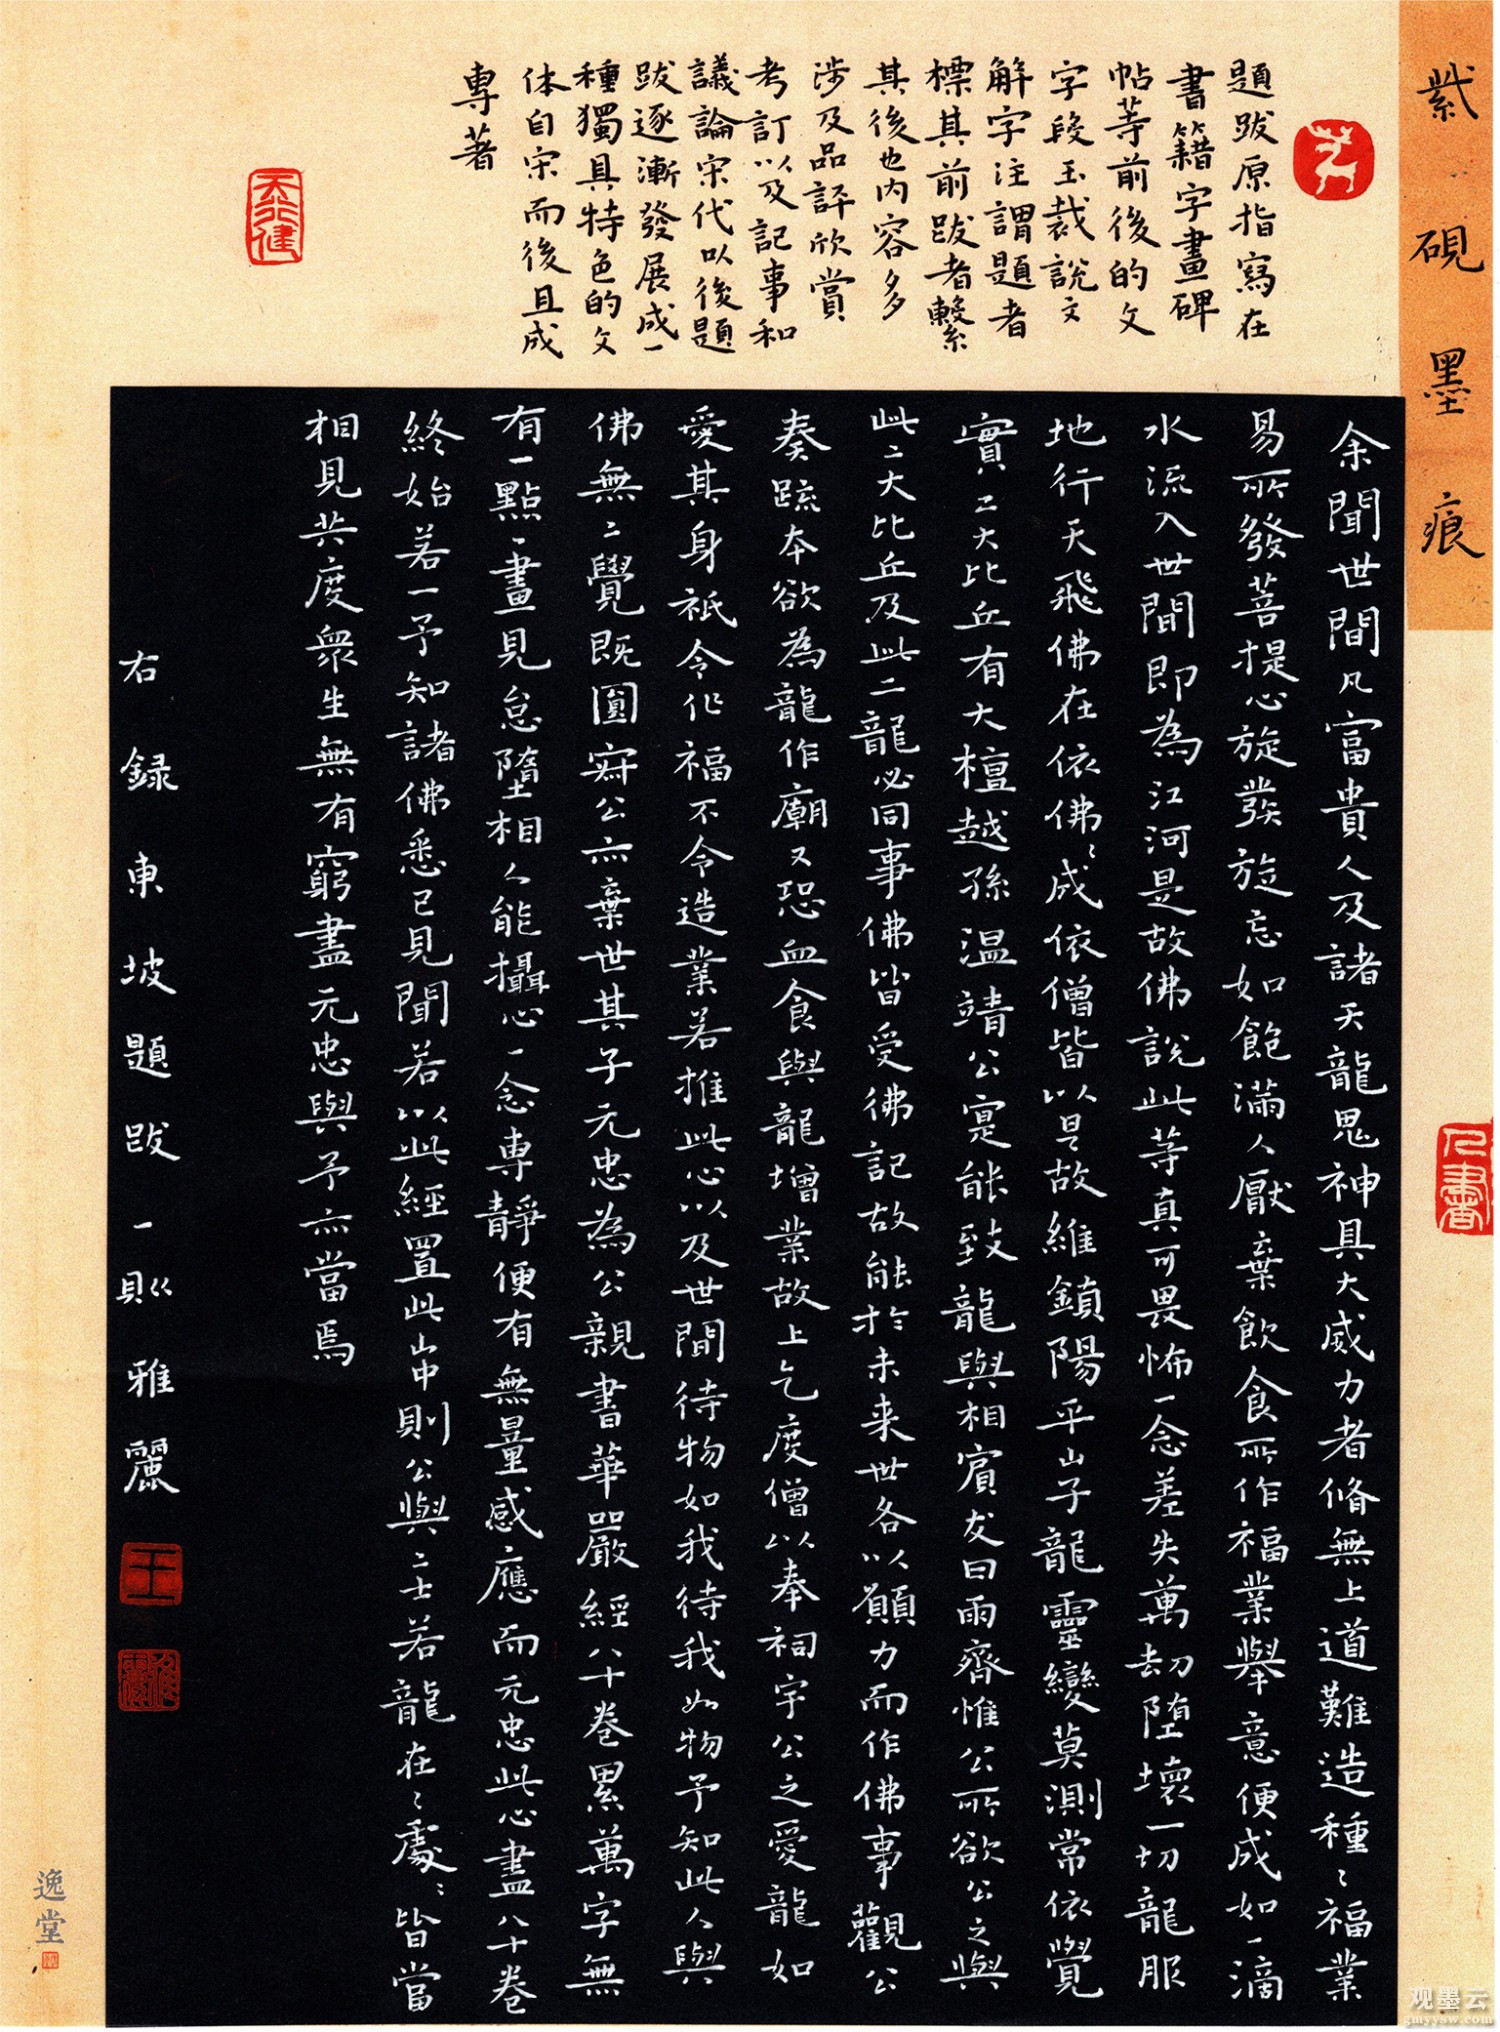 紫硯墨痕
題跋原指寫在
書籍字畫碑
帖等前後的文
字段玉裁說文
解字注謂題者
標其前跋者繫
其後也内容多
涉及品評欣賞
考訂以及記事和
議論宋代以後題
跋逐漸發展成一
種獨具特色的文
体自宋而後且成
專著
天行健
余聞世間凡富貴人及諸天龍鬼神具大威力者脩無上道難造種〻福業
易所發菩提心旋發旋忘如飽滿人厭棄飲食所作福業舉意便成如一滴
水流入世間即為江河是故佛說此等真可畏怖一念差失萬劫墮壞一切龍服
地行天飛佛在依佛〻成依僧皆以是故維鎮陽平山子龍靈變莫測常依覺
實二大比丘有大檀越孫温靖公寔能致龍與相賓友曰雨齊惟公所欲公之與
此二大比丘及此二龍必同事佛皆受佛記故能於未来世各以願力而作佛事觀公
奏疏本欲為龍作廟又恐血食與龍增業故上乞度僧以奉祠宇公之愛龍如
愛其身祇令作福不令造業若推此心以及世間待物如我待我如物予知此人與
佛無二覺既圓寂公亦棄世其子元忠為公親書華嚴經八十卷累萬字無
有一點一畫見怠墮相人能攝心一念專靜便有無量感應而元忠此心盡八十卷
終始若一予知諸佛悉已見聞若以此經置此山中則公與二士若龍在〻處〻皆當
相見共度衆生無有窮盡元忠與予亦當焉
右録東坡題跋一則 雅麗
王
逸堂
观墨云
gmyysw.com